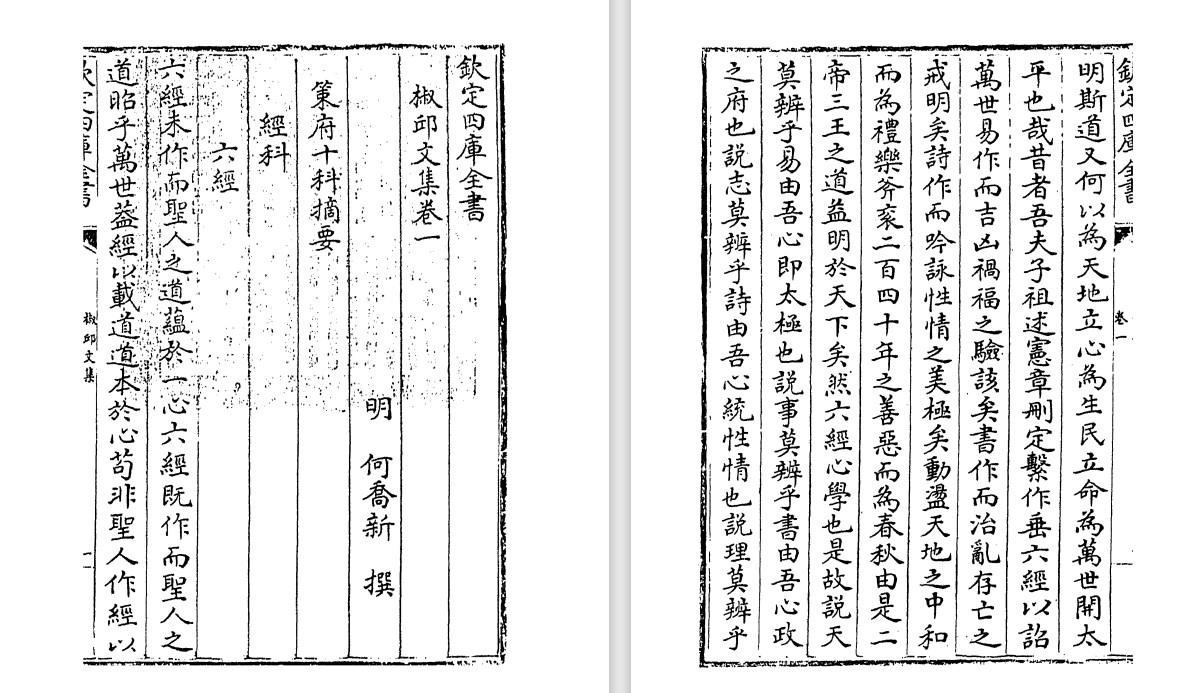 欽定四庫全書
椒邱文集卷一
明 何喬新 撰
策府十科摘要
經科
六經
六經未作而聖人之道蘊於一心六經既作而聖人之
道昭乎萬世葢經以載道道本於心苟非聖人作經以
欽定四庫全書 椒邱文集 一
欽定四庫全書 卷一
明斯道又何以為天地立心為生民立命為萬世開太
平也哉昔者吾夫子祖述憲章刪定繫作垂六經以詔
萬世易作而吉凶禍福之驗該矣書作而治亂存亡之
戒明矣詩作而吟詠性情之美極矣動盪天地之中和
而為禮樂斧衮二百四十年之善惡而為春秋由是二
帝三王之道益明於天下矣然六經心學也是故説天
莫辨乎易由吾心即太極也説事莫辨乎書由吾心政
之府也説志莫辨乎詩由吾心統性情也説理莫辨乎